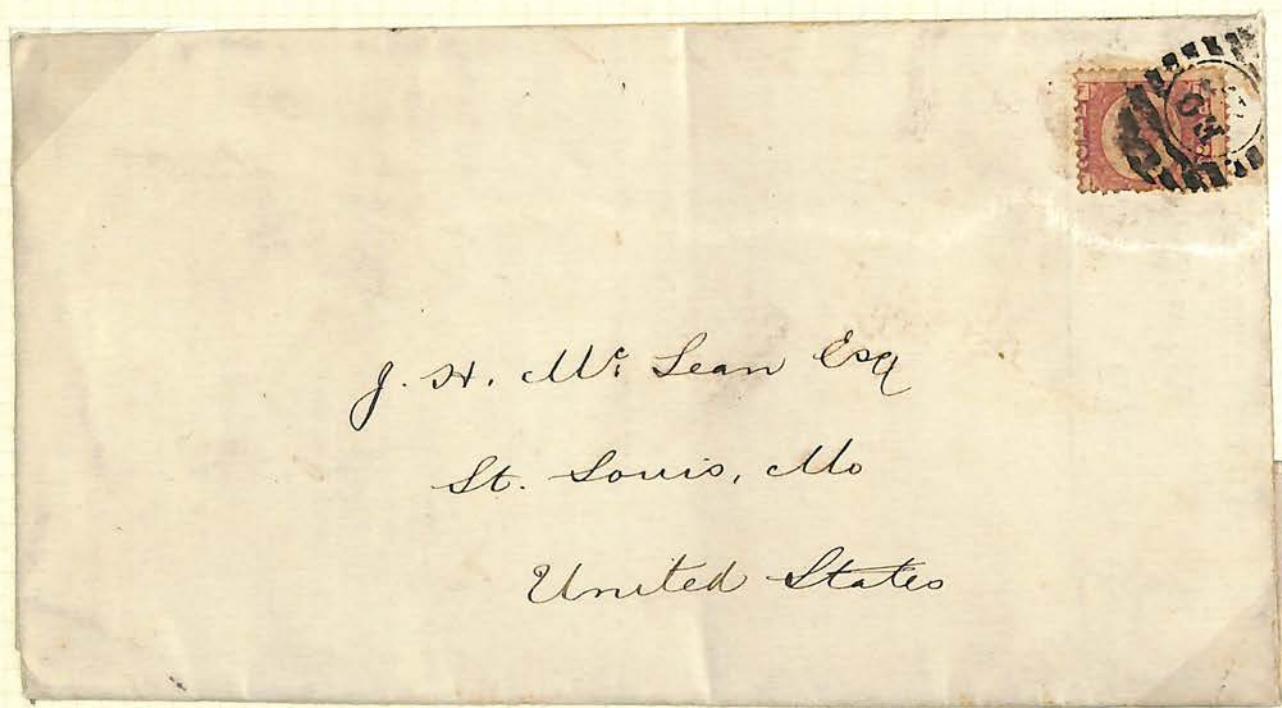 J. H. Mc Lean Esq
St. Louis, Mo
United States